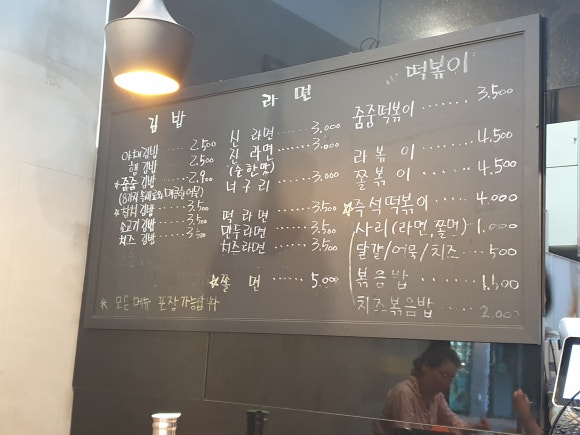 김 밥
야채김밥 ..... 2.500
햄 김밥 ..... 2.500
☆줌줌김밥 ..... 2.900
☆참치김밥 ..... 3.500
소고기김밥 ..... 3.500
치즈 김밥 ..... 3.500
☆ 모든 메뉴 포장가능합니다
라 면
신 라면 ...... 3.000
진 라면 ...... 3.000
(순한맛)
너구리 ...... 3.000
떡 라면 ...... 3.500
만두라면 ...... 3.500
치즈라면 ...... 3.500
☆쫄 면 ...... 5.000
떡볶이
줌줌떡볶이 ....... 3.500
라 볶 이 ....... 4.500
쫄 볶 이 ....... 4.500
☆즉석떡볶이 ..... 4.000
사리(라면,쫄면) 1.000
달걀/어묵/치즈 ... 500
볶음밥 ...... 1.500
치즈볶음밥 ..... 2.000